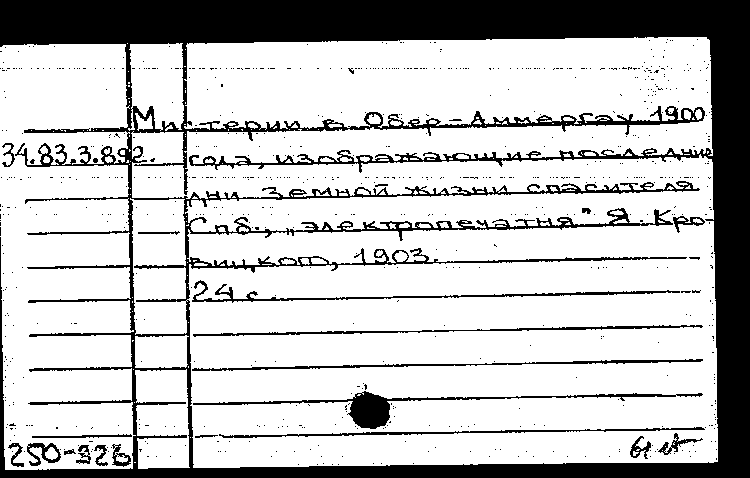 Мистерии в Обер-Аммергау 1900
34.83.3.892. года, изображающие последние
дни земной жизни спасителя
Спб., „электропечатня" Я. Кро-
вицкого, 1903.
24 с.
250-326